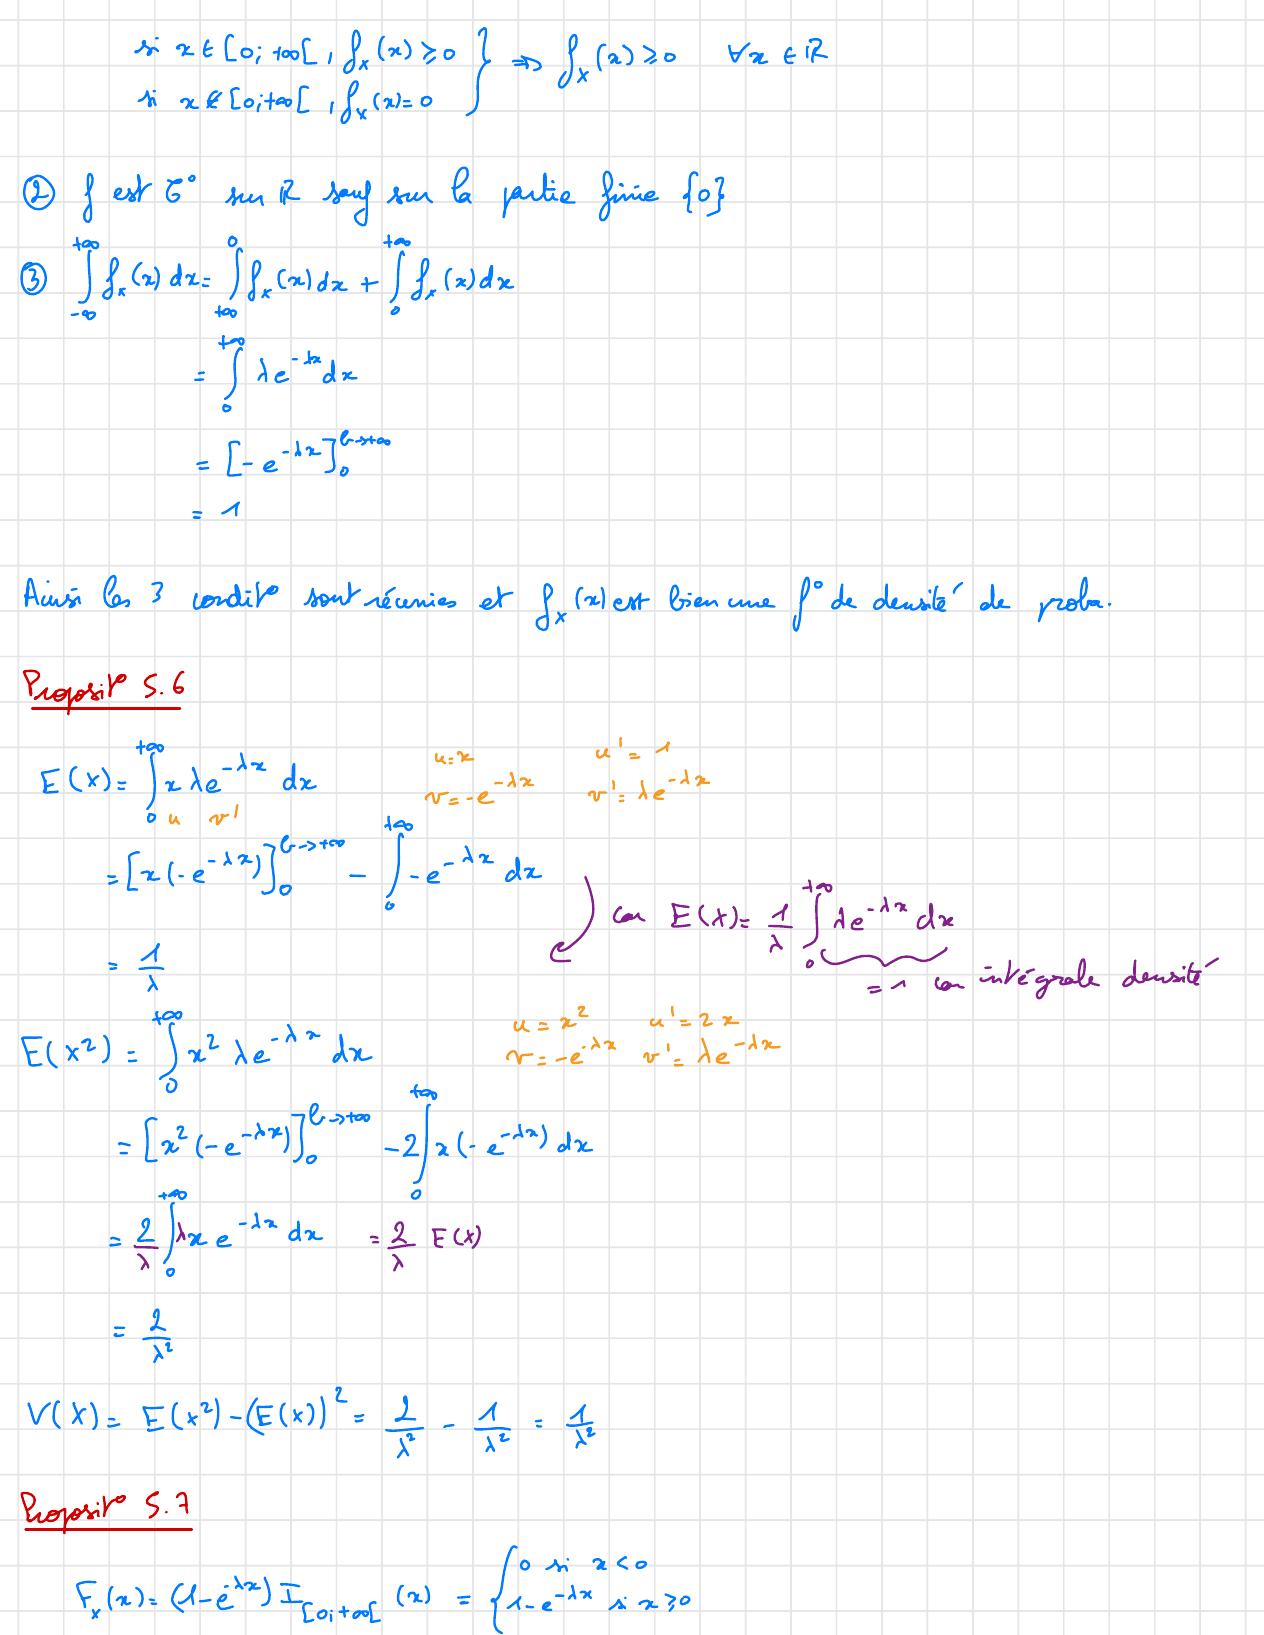 si x ∈ [0; +∞[ , f_X(x) ≥ 0 } ⇒ f_X(x) ≥ 0 ∀x ∈ ℝ
si x ∉ [0;+∞[ , f_X(x) = 0
② f est C° sur ℝ sauf sur la partie finie {0}
③ ∫_{-∞}^{+∞} f_X(x) dx = ∫_{+∞}^{0} f_X(x) dx + ∫_{0}^{+∞} f_X(x) dx
= ∫_{0}^{+∞} λe^{-λx} dx
= [-e^{-λx}]_{0}^{b→+∞}
= 1
Ainsi les 3 condit° sont réunies et f_X(x) est bien une f° de densité de proba.
Proposit° 5.6
E(X) = ∫_{0}^{+∞} xλe^{-λx} dx u=x u'=1
u v' v=-e^{-λx} v'=λe^{-λx}
= [x(-e^{-λx})]_{0}^{b→+∞} - ∫_{0}^{+∞} -e^{-λx} dx
car E(X) = 1/λ ∫_{0}^{+∞} λe^{-λx} dx
= 1/λ
= 1 car intégrale densité
E(X²) = ∫_{0}^{+∞} x² λe^{-λx} dx u=x² u'=2x
v=-e^{-λx} v'=λe^{-λx}
= [x²(-e^{-λx})]_{0}^{b→+∞} - 2∫_{0}^{+∞} x(-e^{-λx}) dx
= 2/λ ∫_{0}^{+∞} λx e^{-λx} dx = 2/λ E(X)
= 2/λ²
V(X) = E(X²) - (E(X))² = 2/λ² - 1/λ² = 1/λ²
Proposit° 5.7
F_X(x) = (1-e^{-λx}) I_{[0;+∞[} (x) = { 0 si x < 0
1-e^{-λx} si x ≥ 0